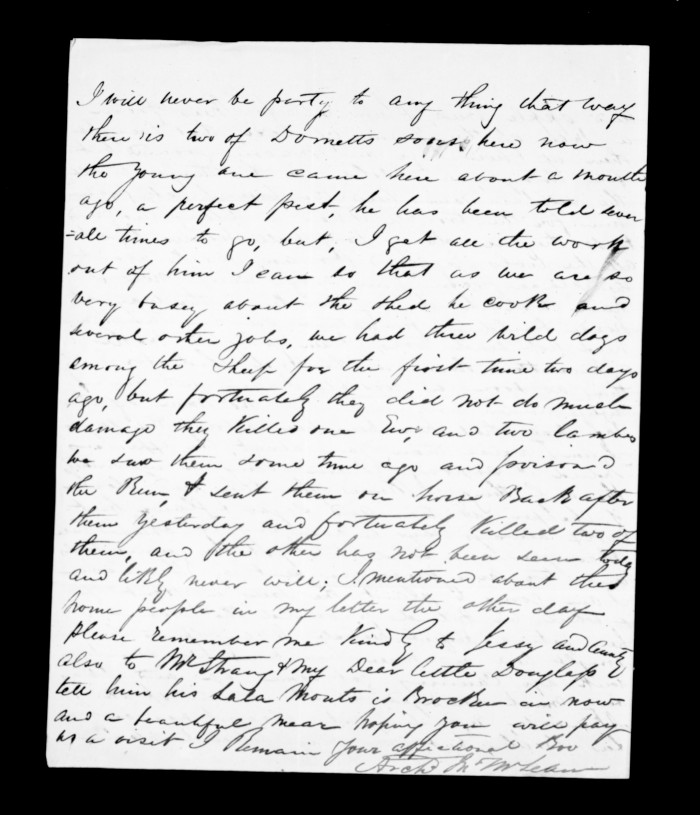 I will never be party to any thing that way
there is two of Dornetts sons here now
the young one came here about a month
ago, a perfect pest, he has been told sever
=all times to go, but, I get all the work
out of him I can so that as we are so
very busey about the shed he cooks and
several other jobs, we had three wild dogs
among the sheep for the first time two days
ago, but fortunately they did not do much
damage they killed one Ewe, and two lambs
we saw them some time ago and poison'd
the Run, & sent them on horse Back after
them yesterday and fortunately killed two of
them, and the other has not been seen today
and likly never will; I mentioned about the
home people in my letter the other day
please remember me Kindly to Jessy and Aunty
also to Mr Strang & My Dear little Douglass
tell him his Lala Monts is Brocken in now
and a beautiful mear hoping you will pay
us a visit I Remain your affectionat Bro
Archd Jn McLean